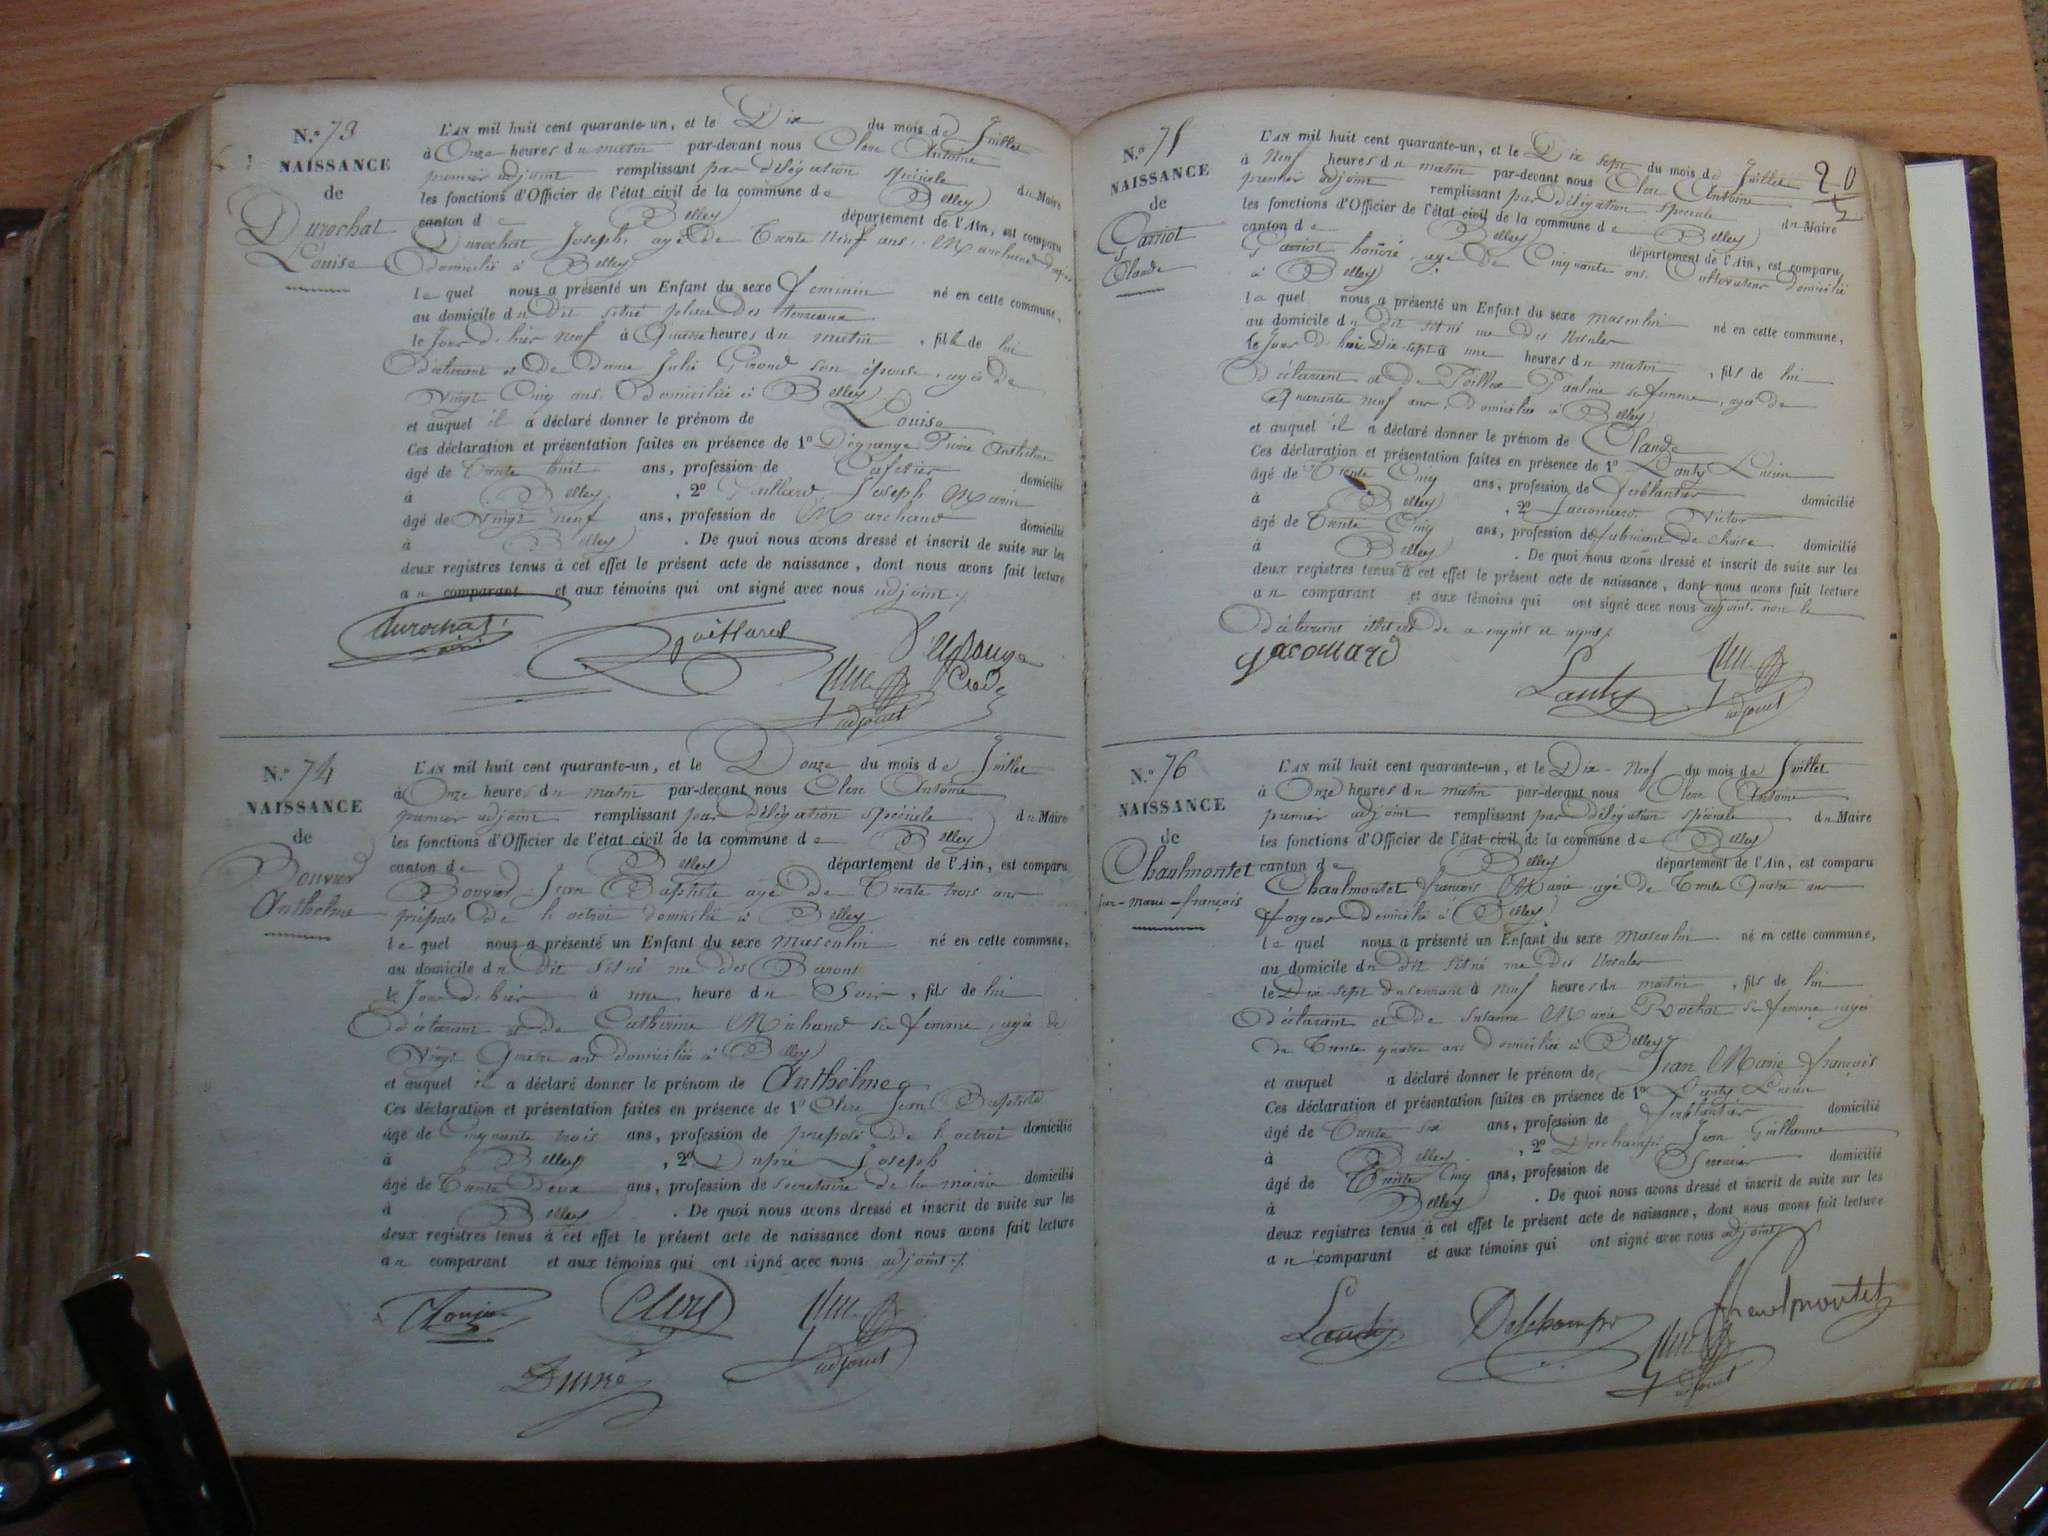 N.° 73
NAISSANCE
de
Durochat
Louise
L'AN mil huit cent quarante-un, et le Dix du mois de Juillet
à Onze heures du matin par-devant nous Clerc Antoine
premier adjoint remplissant par délégation spéciale du Maire
les fonctions d'Officier de l'état civil de la commune de Belley
canton de Belley département de l'Ain, est comparu
Durochat Joseph, agé de Trente Neuf ans, Marchand
domicilié à Belley
lequel nous a présenté un Enfant du sexe feminin né en cette commune,
au domicile du dit situé place des Terreaux
le Jour d'hier neuf à Onze heures du matin, fille de lui
déclarant et de dame Julie Giroud son épouse, agée de
Vingt Cinq ans domiciliée à Belley
et auquel il a déclaré donner le prénom de Louise
Ces déclaration et présentation faites en présence de 1° Dégrange Pierre Anthelme
âgé de Trente huit ans, profession de Cafetier domicilié
à Belley, 2° Gaillard Joseph Marin
âgé de Vingt neuf ans, profession de Marchand domicilié
à Belley. De quoi nous avons dressé et inscrit de suite sur les
deux registres tenus à cet effet le présent acte de naissance, dont nous avons fait lecture
au comparant et aux témoins qui ont signé avec nous adjoint./
durochat
Gaillard
adjoint
N.° 74
NAISSANCE
de
Bouvier
Anthelme
L'AN mil huit cent quarante-un, et le Douze du mois de Juillet
à Onze heures du matin par-devant nous Clerc Antoine
premier adjoint remplissant par délégation spéciale du Maire
les fonctions d'Officier de l'état civil de la commune de Belley
canton de Belley département de l'Ain, est comparu
Bouvier Jean Baptiste agé de Trente trois ans
préposé de l'octroi domicilié à Belley
lequel nous a présenté un Enfant du sexe masculin né en cette commune,
au domicile du dit situé rue des Barons
le Jour d'hier à une heure du Soir, fils de lui
déclarant et de Catherine Michaud sa femme, agée de
Vingt Quatre ans domiciliée à Belley
et auquel il a déclaré donner le prénom de Anthelme
Ces déclaration et présentation faites en présence de 1° Clerc Jean Baptiste
âgé de Cinquante trois ans, profession de préposé de l'octroi domicilié
à Belley, 2° Dupré Joseph
âgé de Trente Deux ans, profession de secretaire de la mairie domicilié
à Belley. De quoi nous avons dressé et inscrit de suite sur les
deux registres tenus à cet effet le présent acte de naissance dont nous avons fait lecture
au comparant et aux témoins qui ont signé avec nous adjoint./
Clerc
adjoint
Dupré
N.° 75
NAISSANCE
de
Garriot
Claude
20
L'AN mil huit cent quarante-un, et le Dix sept du mois de Juillet
à Neuf heures du matin par-devant nous Clerc Antoine
premier adjoint remplissant par délégation speciale du Maire
les fonctions d'Officier de l'état civil de la commune de Belley
canton de Belley département de l'Ain, est comparu
Garriot honoré, agé de Cinquante ans, Cultivateur domicilié
à Belley
lequel nous a présenté un Enfant du sexe masculin né en cette commune,
au domicile du dit situé rue des Ursules
le Jour d'hui Dix-sept à une heures du matin, fils de lui
déclarant et de Pauline sa femme, agée de
Quarante neuf ans, domiciliée à Belley
et auquel il a déclaré donner le prénom de Claude
Ces déclaration et présentation faites en présence de 1° Lauty Lucien
âgé de Trente Cinq ans, profession de ferblantier domicilié
à Belley, 2° Jacouard Victor
âgé de Trente Cinq ans, profession de fabricant de chaise domicilié
à Belley. De quoi nous avons dressé et inscrit de suite sur les
deux registres tenus à cet effet le présent acte de naissance, dont nous avons fait lecture
au comparant et aux témoins qui ont signé avec nous adjoint, non le
déclarant illitéré de ce enquis et requis./
Jacouard
Lauty
adjoint
N.° 76
NAISSANCE
de
Chaulmontet
jean-marie-françois
L'AN mil huit cent quarante-un, et le Dix-Neuf du mois de Juillet
à Onze heures du matin par-devant nous Clerc Antoine
premier adjoint remplissant par délégation spéciale du Maire
les fonctions d'Officier de l'état civil de la commune de Belley
canton de Belley département de l'Ain, est comparu
Chaulmontet françois Marie agé de Trente Quatre ans
forgeur domicilié à Belley
lequel nous a présenté un Enfant du sexe masculin né en cette commune,
au domicile du dit situé rue des Ursules
le Dix-sept du courant à neuf heures du matin, fils de lui
déclarant et de Susanne Marie Rochat sa femme, agée
de Trente quatre ans domiciliée à Belley
et auquel a déclaré donner le prénom de Jean Marie françois
Ces déclaration et présentation faites en présence de 1° Lauty Lucien
âgé de Trente six ans, profession de ferblantier domicilié
à Belley, 2° Deschamps Jean Guillaume
âgé de Trente Cinq ans, profession de Serrurier domicilié
à Belley. De quoi nous avons dressé et inscrit de suite sur les
deux registres tenus à cet effet le présent acte de naissance, dont nous avons fait lecture
au comparant et aux témoins qui ont signé avec nous adjoint
Lauty
Deschamps
Chaulmontet
adjoint